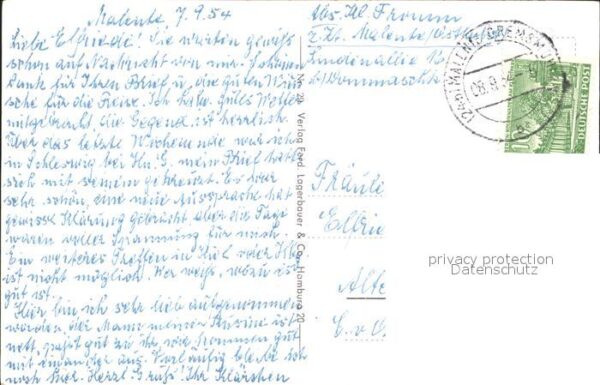 Malente, 7.9.54
Liebe Elfriede! Sie warten gewiß
schon auf Nachricht von mir. Schönen
Dank für Ihren Brief u. die guten Wün-
sche für die Reise. Ich habe gutes Wetter
mitgebracht, die Gegend ist herrlich.
Über das letzte Wochenende war ich
in Schleswig bei Hn. G. mein Brief hatte
sich mit seinem gekreuzt. Es war
sehr schön, eine neue Aussprache hat
gewisse Klärung gebracht aber die Tage
waren voller Spannung für mich.
Ein weiteres Treffen in Kiel oder
ist nicht möglich. Wer weiß, wozu es
gut ist.
Hier bin ich sehr lieb aufgenommen
worden, der Mann meiner Kusine ist
nett, paßt gut zu ihr, wir kommen gut
mit einander aus. Vorläufig bleibe ich
noch hier. Herzl. Gruß! Ihr Klärchen
Nr. 29 Verlag Ferd. Lagerbauer & Co., Hamburg 20
Abs. Kl. Fromm
z. Zt. Malente
Lindenallee
b/Dommasch
(24b) MALENTE-GREMSMÜHLEN
08.9.54
DEUTSCHE POST
10
Fräule
Elfrie
Alte
C. v. O
privacy protection
Datenschutz